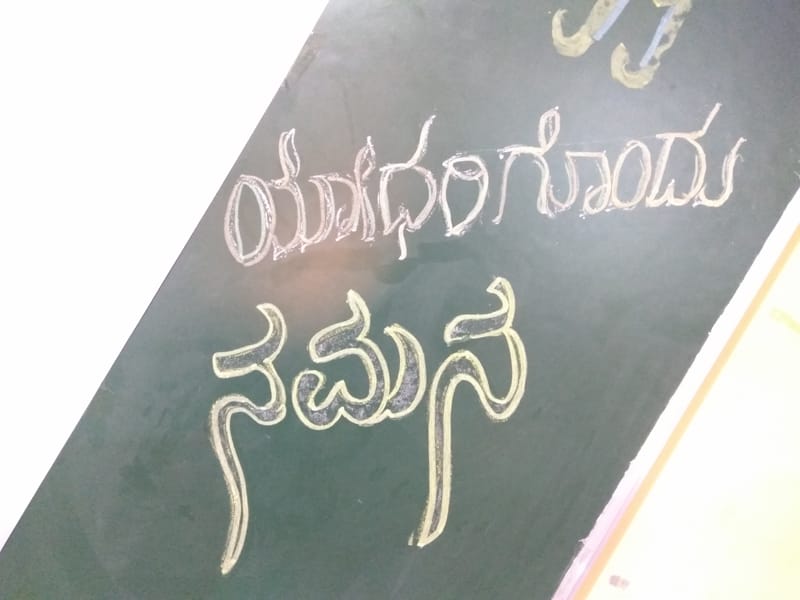 ಯೋಧರಿಗೊಂದು
ನಮನ